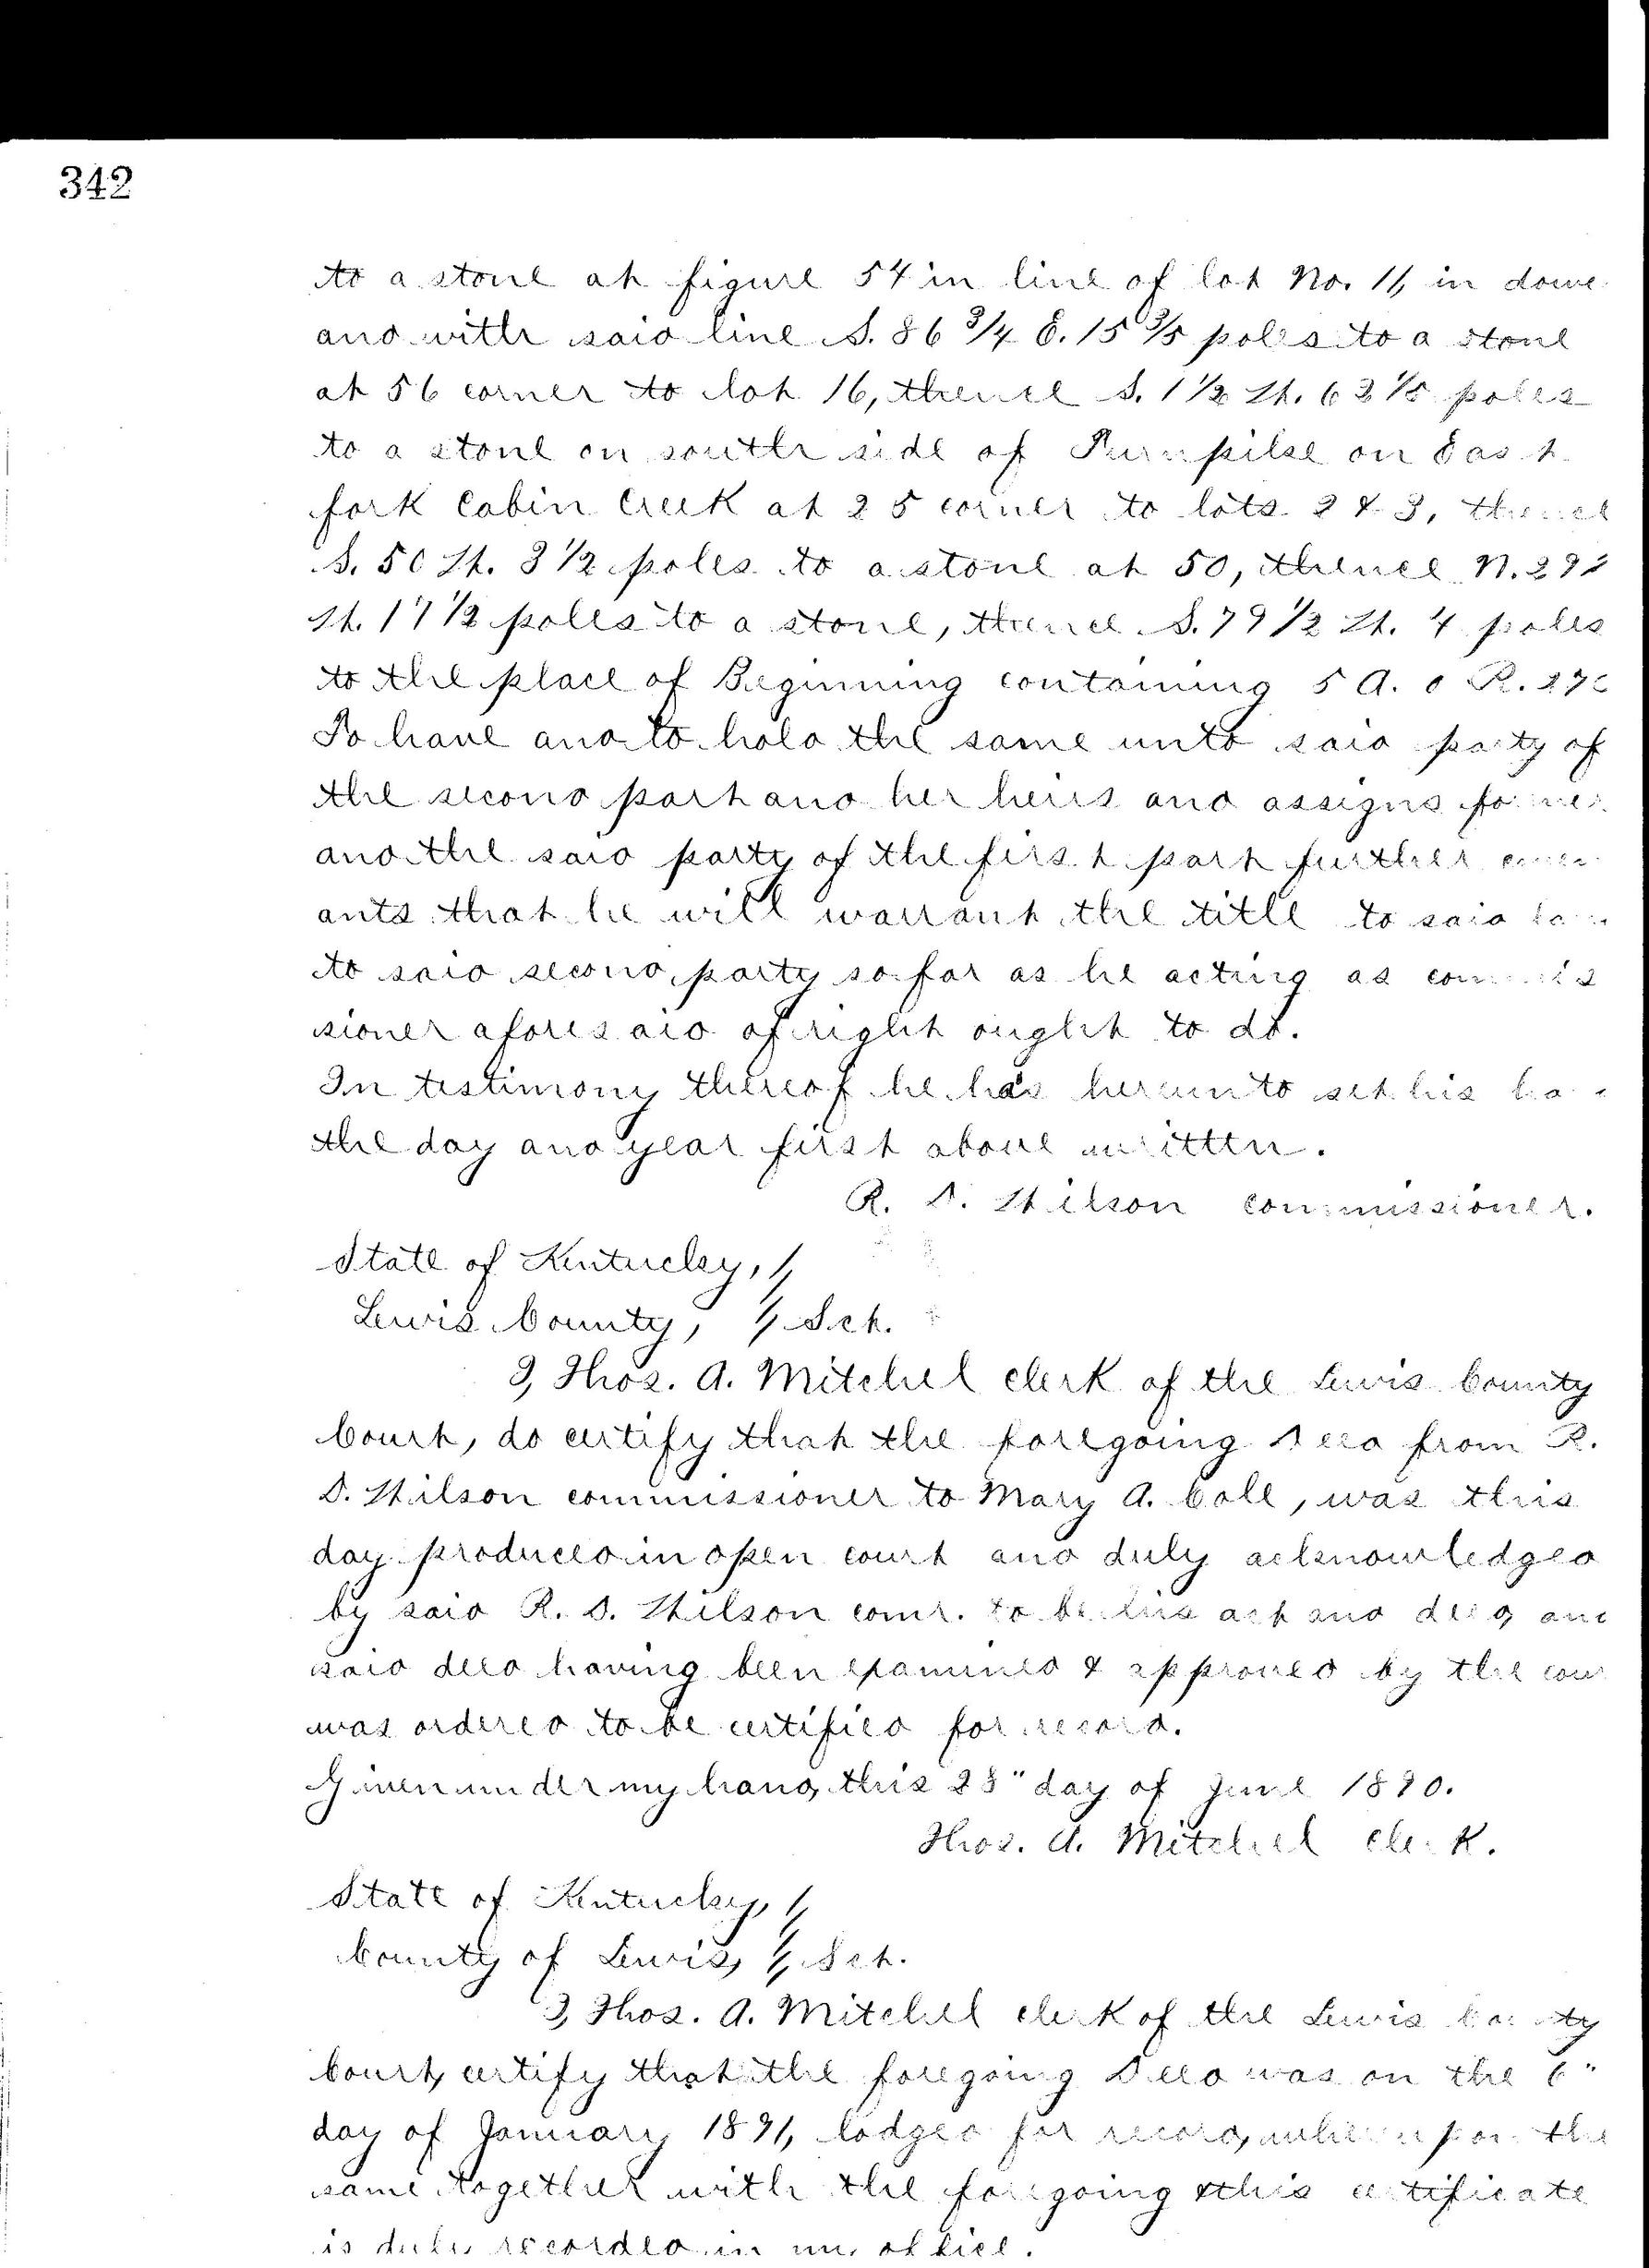 342
to a stone at figure 54 in line of lot No. 11, in dowe
and with said line S. 86 3/4 E. 15 3/5 poles to a stone
at 56 corner to lot 16, thence S. 1 1/2 W. 63 1/5 poles
to a stone on south side of Turnpike on East
fork Cabin Creek at 25 corner to lots 2 & 3, thence
S. 50 W. 3 1/2 poles to a stone at 50, thence N.
W. 17 1/2 poles to a stone, thence S. 79 1/2 W. 4 poles
to the place of Beginning containing 5 A. 0 R.
To have and to hold the same unto said party of
the second part and her heirs and assigns forever
and the said party of the first part further coven
ants that he will warrant the title to said
to said second party so far as he acting as commis
sioner aforesaid of right ought to do.
In testimony thereof he has hereunto set his
the day and year first above written.
R. D. Wilson commissioner.
State of Kentucky,
Lewis County, Sct.
I, Thos. A. Mitchel clerk of the Lewis County
Court, do certify that the foregoing Deed from R.
D. Wilson commissioner to Mary A. Cole, was this
day produced in open court and duly acknowledged
by said R. D. Wilson comr. to be his act and deed, and
said deed having been examined & approved by the cour
was ordered to be certified for record.
Given under my hand, this 28" day of June 1890.
Thos. A. Mitchel clerk.
State of Kentucky,
County of Lewis, Sct.
I, Thos. A. Mitchel clerk of the Lewis County
Court, certify that the foregoing Deed was on the 6"
day of January 1891, lodged for record, whereupon the
same together with the foregoing & this certificate
is duly recorded in my office.